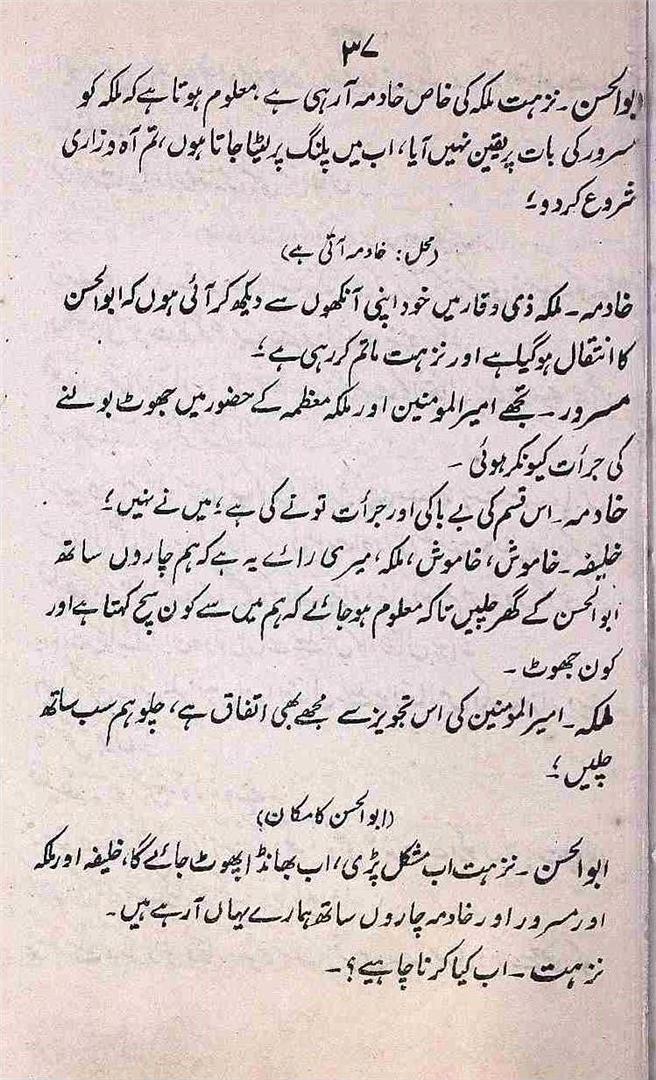 ۳۷
ابوالحسن۔ نزہت ملکہ کی خاص خادمہ آ رہی ہے، معلوم ہوتا ہے کہ ملکہ کو
مسرور کی بات پر یقین نہیں آیا، اب میں پلنگ پر لیٹا جاتا ہوں، تم آہ و زاری
شروع کر دو۔!
(محل: خادمہ آتی ہے)
خادمہ۔ ملکہ ذی وقار میں خود اپنی آنکھوں سے دیکھ کر آئی ہوں کہ ابوالحسن
کا انتقال ہو گیا ہے اور نزہت ماتم کر رہی ہے۔!
مسرور۔ تجھے امیر المومنین اور ملکہ معظمہ کے حضور میں جھوٹ بولنے
کی جرأت کیونکر ہوئی۔
خادمہ۔ اس قسم کی بے باکی اور جرأت تو نے کی ہے؛ میں نے نہیں!
خلیفہ۔ خاموش، خاموش، ملکہ، میری رائے یہ ہے کہ ہم چاروں ساتھ
ابوالحسن کے گھر چلیں تاکہ معلوم ہو جائے کہ ہم میں سے کون سچ کہتا ہے اور
کون جھوٹ۔
ملکہ۔ امیر المومنین کی اس تجویز سے مجھے بھی اتفاق ہے، چلو ہم سب ساتھ
چلیں!۔
(ابوالحسن کا مکان)
ابوالحسن۔ نزہت اب مشکل پڑی، اب بھانڈا پھوٹ جائے گا، خلیفہ اور ملکہ
اور مسرور اور خادمہ چاروں ساتھ ہمارے یہاں آ رہے ہیں۔
نزہت۔ اب کیا کرنا چاہیے؟۔